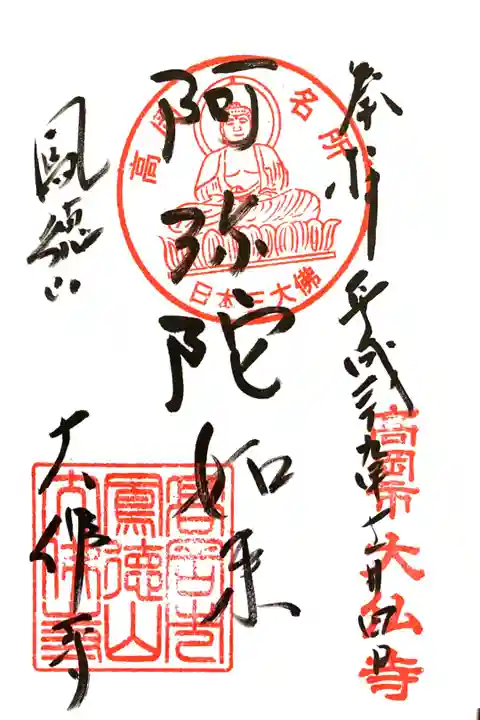 奉拝 平成二十九年
高岡市大仏寺
高岡名所
日本三大佛
阿弥陀如来
鳳徳山
大佛寺
高岡市
鳳徳山
大佛寺